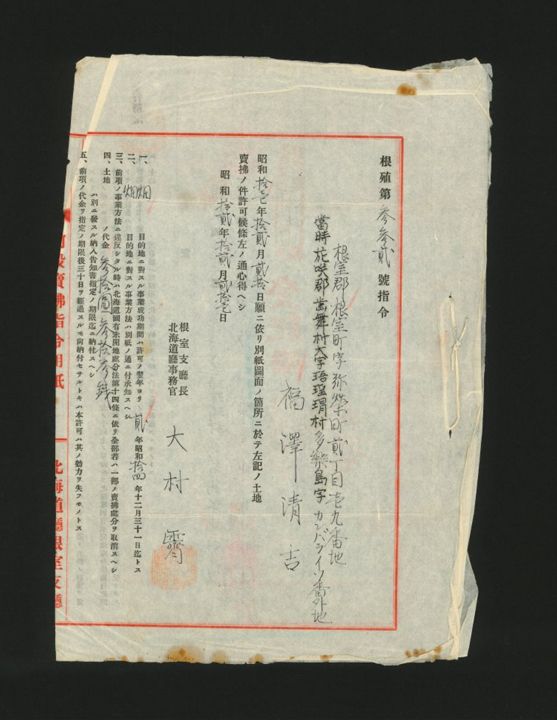 根殖第 參參貳 號指令
根室郡根室町字弥栄町貳丁目壱九番地
當時花咲郡歯舞村大字珸瑤瑁村多楽島字カンバライソ番外地
福澤清吉
昭和拾壱年拾貳月貳拾日願ニ依リ別紙圖面ノ箇所ニ於テ左記ノ土地
賣拂ノ件許可候條左ノ通心得ヘシ
昭和拾貳年拾貳月貳拾壱日
根室支廳長
北海道廳事務官 大村
一、目的地ニ對スル事業成功期間ハ許可ノ翌年ヨリ貳年昭和拾四年十二月三十一日迄トス
二、目的地ニ對スル事業方法ハ別紙ノ通ニ付承知スヘシ
三、前項ノ事業方法ニ違反シタル時ハ北海道國有未開地處分法第十四條ニ依リ全部若ハ一部ノ賣拂處分ヲ取消スヘシ
四、土地ノ代金 參拾圓參拾參錢
ハ別ニ發スル納入告知書指定ノ期限迄ニ納社スヘシ
五、前項ノ代金ヲ指定ノ期限後三十日ヲ經過スルモ尚納付セサルトキハ本許可ハ其ノ効力ヲ失フモノトス
賣拂指令用紙
北海道廳根室支廳